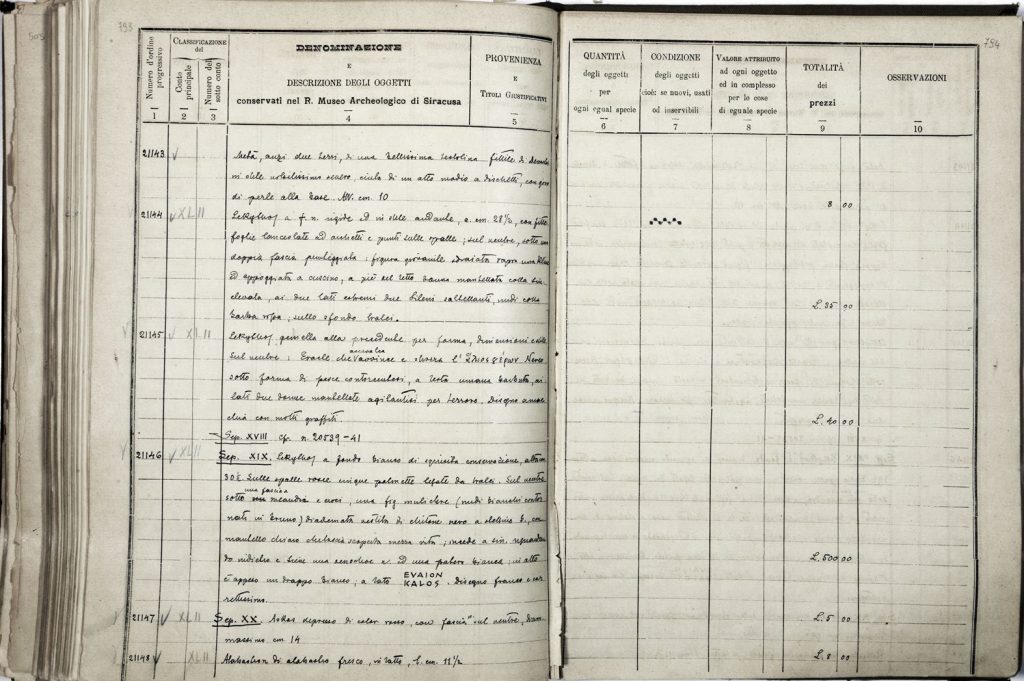 505
793
794
Numero d'ordine progressivo
CLASSIFICAZIONE del
Conto principale
Numero del sotto conto
DENOMINAZIONE
E
DESCRIZIONE DEGLI OGGETTI
conservati nel R. Museo Archeologico di Siracusa
PROVENIENZA
E
TITOLI GIUSTIFICATIVI
1 2 3 4 5
QUANTITÀ
degli oggetti
per
ogni egual specie
6
CONDIZIONE
degli oggetti
cioè: se nuovi, usati
od inservibili
7
VALORE ATTRIBUITO
ad ogni oggetto
ed in complesso
per le cose
di eguale specie
8
TOTALITÀ
dei
prezzi
9
OSSERVAZIONI
10
21143 Metà, anzi due terzi, di una bellissima testolina fittile di
di stile nobilissimo severo, cinta di un alto modio a dischetti, con
di perle alla base. Alt. cm. 10
8 00
21144 XLII Lekythos a f. n. rigide ed in stile andante, a. cm. 28½, con
foglie lanceolate ed astietti e punti sulle spalle; sul ventre, sotto una
doppia fascia punteggiata: figura giovanile sdraiata sopra una kline
ed appoggiata a cuscino, a piè del letto donna mantellata colla
elevata, ai due lati estremi due Sileni saltellanti, nudi colla
barba rossa; sullo sfondo tralci.
L. 35 00
21145 XLII Lekythos gemella alla precedente per forma, dimensioni e stile
sul ventre: Eracle che e l' Ἅλιος γέρων Nereo
sotto forma di pesce contorcentesi, a testa umana barbuta, ai
lati due donne mantellate agitantisi per terrore. Disegno a
con molti graffiti.
L. 40 00
Sep. XVIII cfr. n. 20539-41
21146 XLII Sep. XIX. Lekythos a fondo bianco di squisita conservazione, alta cm.
30½. Sulle spalle rosse cinque palmette legate da tralci. Sul ventre
sotto una fascia meandri e croci, una fig. muliebre (nudi bianchi contor-
nati in bruno) diademata vestita di chitone nero a, con
mantello chiaro che lascia scoperta mezza vita; incede a sin. riguardan-
do indietro e tiene una ed una bianca; in alto
è appeso un drappo bianco; a lato EVAION
KALOS. Disegno franco e cor-
rettissimo.
L. 500 00
21147 XLII Sep. XX. Askos depresso di color rosso, con fascia sul ventre, diam.
massimo cm 14
L. 5 00
21148 XLII Alabastron di alabastro fresco, intatto, l. cm. 11½
L. 8 00